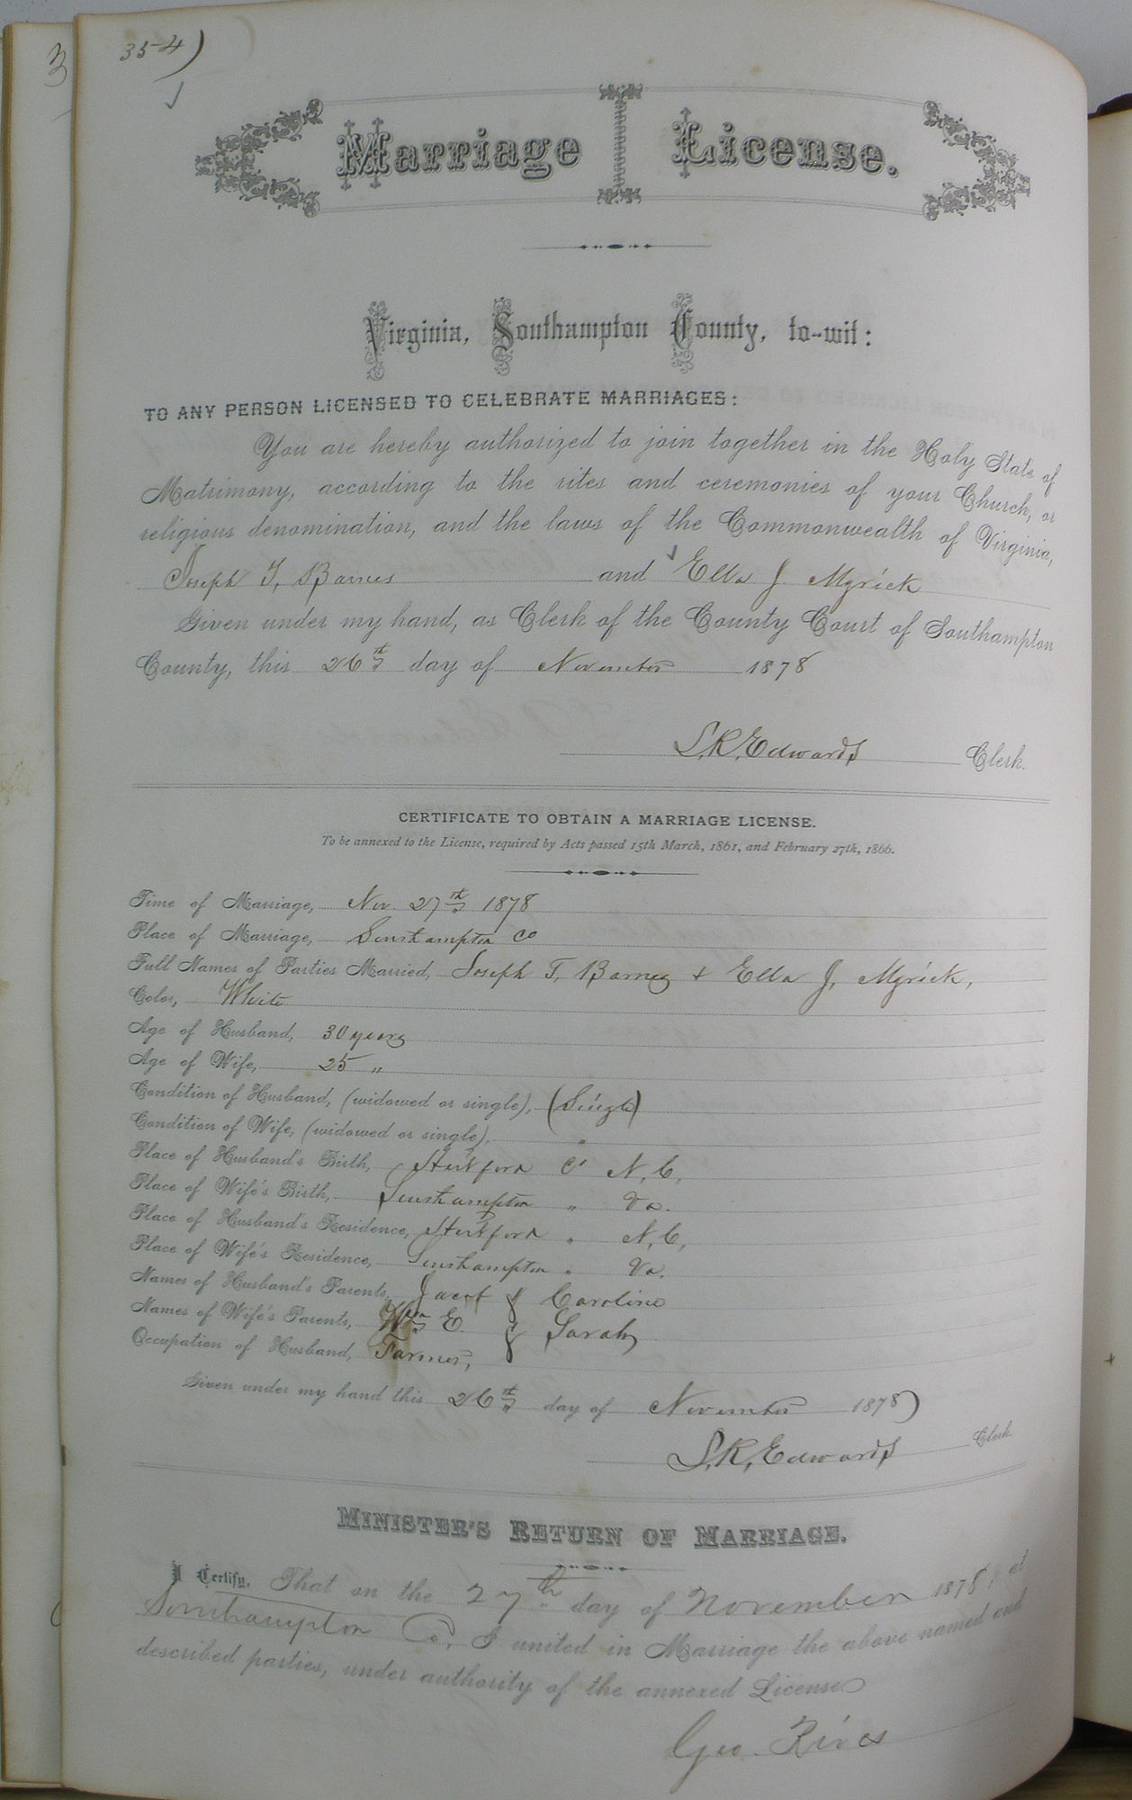 354)
3
Marriage License.
Virginia, Southampton County, to-wit:
TO ANY PERSON LICENSED TO CELEBRATE MARRIAGES:
You are hereby authorized to join together in the Holy State of
Matrimony, according to the rites and ceremonies of your Church, or
religious denomination, and the laws of the Commonwealth of Virginia,
Joseph T. Barnes and Ella J. Myrick
Given under my hand, as Clerk of the County Court of Southampton
County, this 26th day of November 1878
L.R. Edwards Clerk.
CERTIFICATE TO OBTAIN A MARRIAGE LICENSE.
To be annexed to the License, required by Acts passed 15th March, 1861, and February 27th, 1866.
Time of Marriage, Nov. 27th 1878
Place of Marriage, Southampton Co
Full Names of Parties Married, Joseph T. Barnes + Ella J. Myrick,
Color, White
Age of Husband, 30 years
Age of Wife, 25 "
Condition of Husband, (widowed or single), (Single)
Condition of Wife, (widowed or single), "
Place of Husband's Birth, Hertford Co N.C.
Place of Wife's Birth, Southampton " Va.
Place of Husband's Residence, Hertford " N.C.
Place of Wife's Residence, Southampton " Va.
Names of Husband's Parents, Jacob & Caroline
Names of Wife's Parents, Wm E. & Sarah
Occupation of Husband, Farmer,
Given under my hand this 26th day of November 1878)
L.R. Edwards Clerk.
MINISTER'S RETURN OF MARRIAGE.
I Certify, That on the 27th day of November 1878, at
Southampton Co, I united in Marriage the above named and
described parties, under authority of the annexed License
Geo. Rives